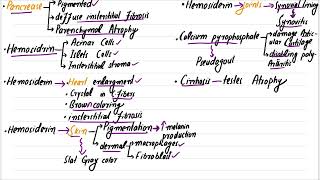 • Pancreas → Pigmented
→ diffuse interstitial fibrosis
→ Parenchymal Atrophy
• Hemosidrin → • Acinar Cells ✓
• Islets Cells ✓
• Interstitial stroma ✓
• Hemosiderin → • Heart enlargment ✓
• Crystal in C fibers
• Brown coloring
• insterstitial fibrosis
• Hemosiderin → Skin → Pigmentation → ↑ melanin production
→ dermal → macrophages ✓
→ Fibroblast ✓
Slat Gray color
• Hemosiderin → Joints → Synovial lining
Synovitis
• Calcium pyrophosphate → • damage Articular Cartilage
• disabling poly Arthritis
Pseudogout
• Cirrhosis → testes Atrophy